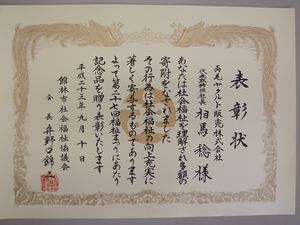 表彰状
両毛ヤクルト販売株式会社
代表取締役社長 相馬稔様
あなたは社会福祉を理解され多額の
寄附をなされました
その行為は社会福祉の向上充実に
著しく寄与するものであります
よって第二十七回福祉まつりにあたり
記念品を贈り表彰いたします
平成二十三年九月十日
館林市社会福祉協議会
会長 井野口錦